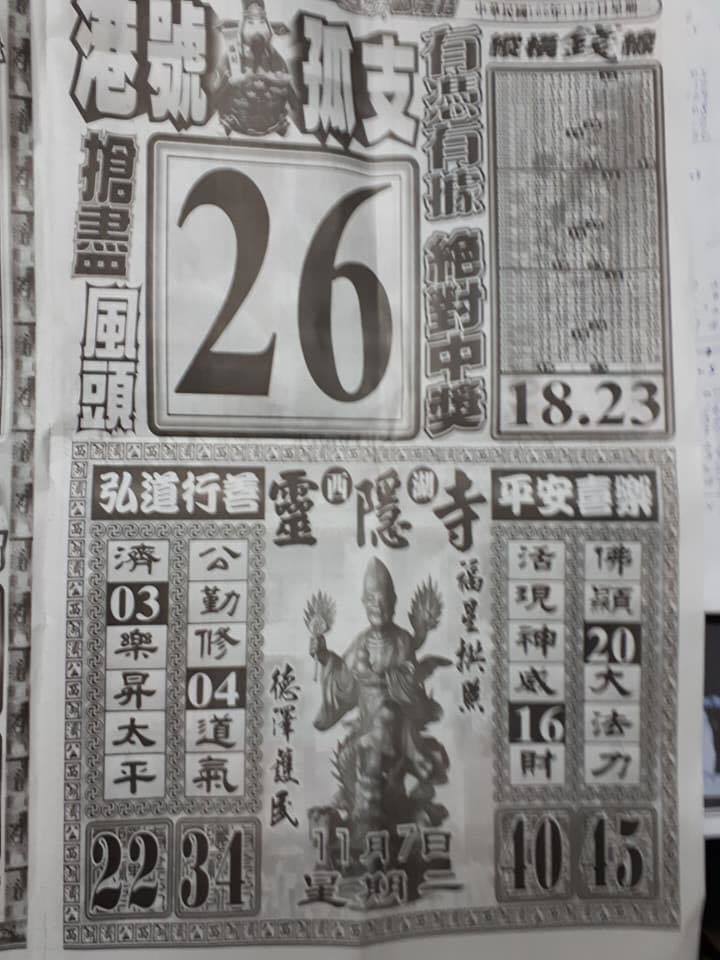 港號 孤支
搶盡風頭
26
有憑有據 絕對中獎
縱橫錢線
18.23
弘道行善
靈西隱湖寺
平安喜樂
公勤修04道氣
濟03樂昇太平
福星拱照
德澤護民
佛顯20大法力
活現神威16財
22 34
11月7日
星期二
40 45